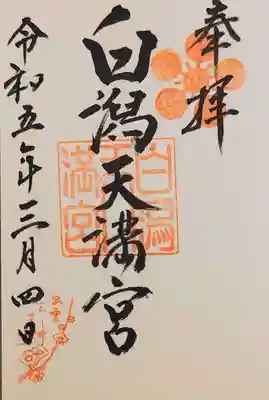 奉拝
白潟天満宮
令和五年三月四日
白潟天満宮